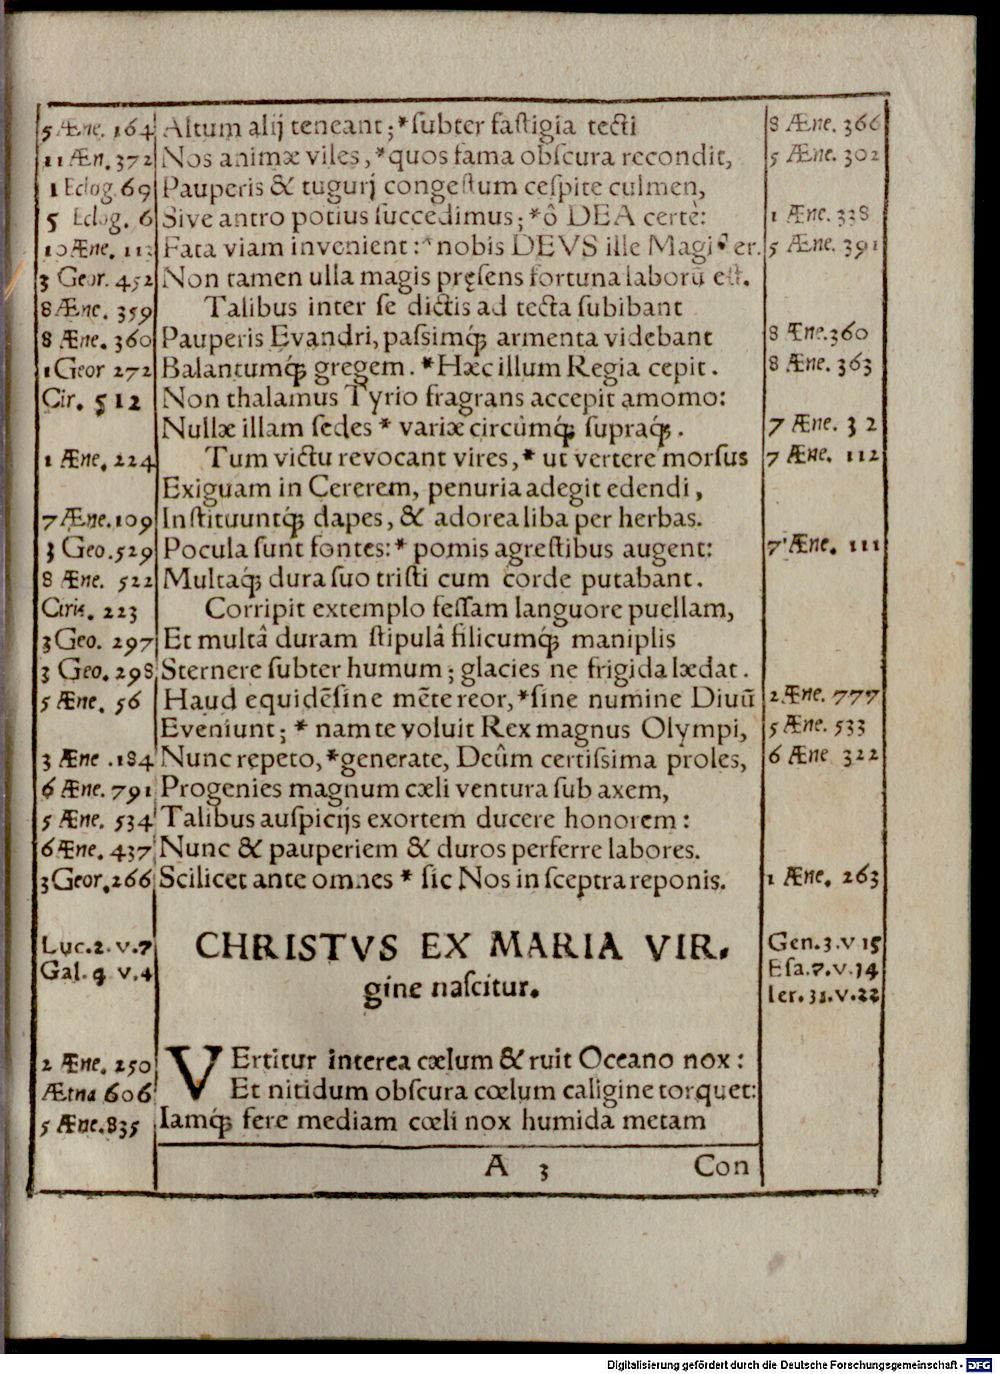 5 Æne. 164 Altum alij teneant;*ſubter faſtigia tecti 8 Æne. 366
11 Æn. 372 Nos animæ viles,*quos fama obſcura recondit, 5 Æne. 302
1 Eclog. 69 Pauperis & tugurj congeſtum ceſpite culmen,
5 Eclog. 6 Sive antro potius ſuccedimus;*ô DEA certè: 1 Æne. 328
10 Æne. 113 Fata viam invenient:*nobis DEVS ille Magiſter. 5 Æne. 391
3 Geor. 452 Non tamen ulla magis pręſens fortuna laborū eſt.
8 Æne. 359 Talibus inter ſe dictis ad tecta ſubibant
8 Æne. 360 Pauperis Evandri, paſsimq́; armenta videbant 8 Æne. 360
1 Geor 272 Balantumq́; gregem. *Hæc illum Regia cepit. 8 Æne. 363
Cir. 512 Non thalamus Tyrio fragrans accepit amomo:
Nullæ illam ſedes * variæ circùmq́; ſupraq́;. 7 Æne. 32
1 Æne. 224 Tum victu revocant vires,* ut vertere morſus 7 Æne. 112
Exiguam in Cererem, penuria adegit edendi,
7 Æne. 109 Inſtituuntq́; dapes, & adorea liba per herbas.
3 Geo. 529 Pocula ſunt fontes:* pomis agreſtibus augent: 7 Æne. 111
8 Æne. 522 Multaq́; dura ſuo triſti cum corde putabant.
Ciris. 223 Corripit extemplo feſſam languore puellam,
3 Geo. 297 Et multâ duram ſtipulâ filicumq́; maniplis
3 Geo. 298 Sternere ſubter humum; glacies ne frigida lædat.
5 Æne. 56 Haud equidē ſine mēte reor,*ſine numine Divū 2 Æne. 777
Eveniunt; * nam te voluit Rex magnus Olympi, 5 Æne. 533
3 Æne. 184 Nunc repeto,*generate, Deûm certiſsima proles, 6 Æne 322
6 Æne. 791 Progenies magnum cæli ventura ſub axem,
5 Æne. 534 Talibus auſpicijs exortem ducere honorem:
6 Æne. 437 Nunc & pauperiem & duros perferre labores.
3 Geor. 266 Scilicet ante omnes * ſic Nos in ſceptra reponis. 1 Æne. 263
Luc. 2. v. 7 CHRISTVS EX MARIA VIR. Gen. 3. v 15
Gal. 4 v. 4 gine naſcitur. Eſa. 7. v. 14
Ier. 31. v. 22
2 Æne. 250 VErtitur interea cælum & ruit Oceano nox:
Ætna 606 Et nitidum obſcura cœlum caligine torquet:
5 Æne. 835 Iamq́; fere mediam cœli nox humida metam
A 3 Con
Digitalisierung gefördert durch die Deutsche Forschungsgemeinschaft - DFG